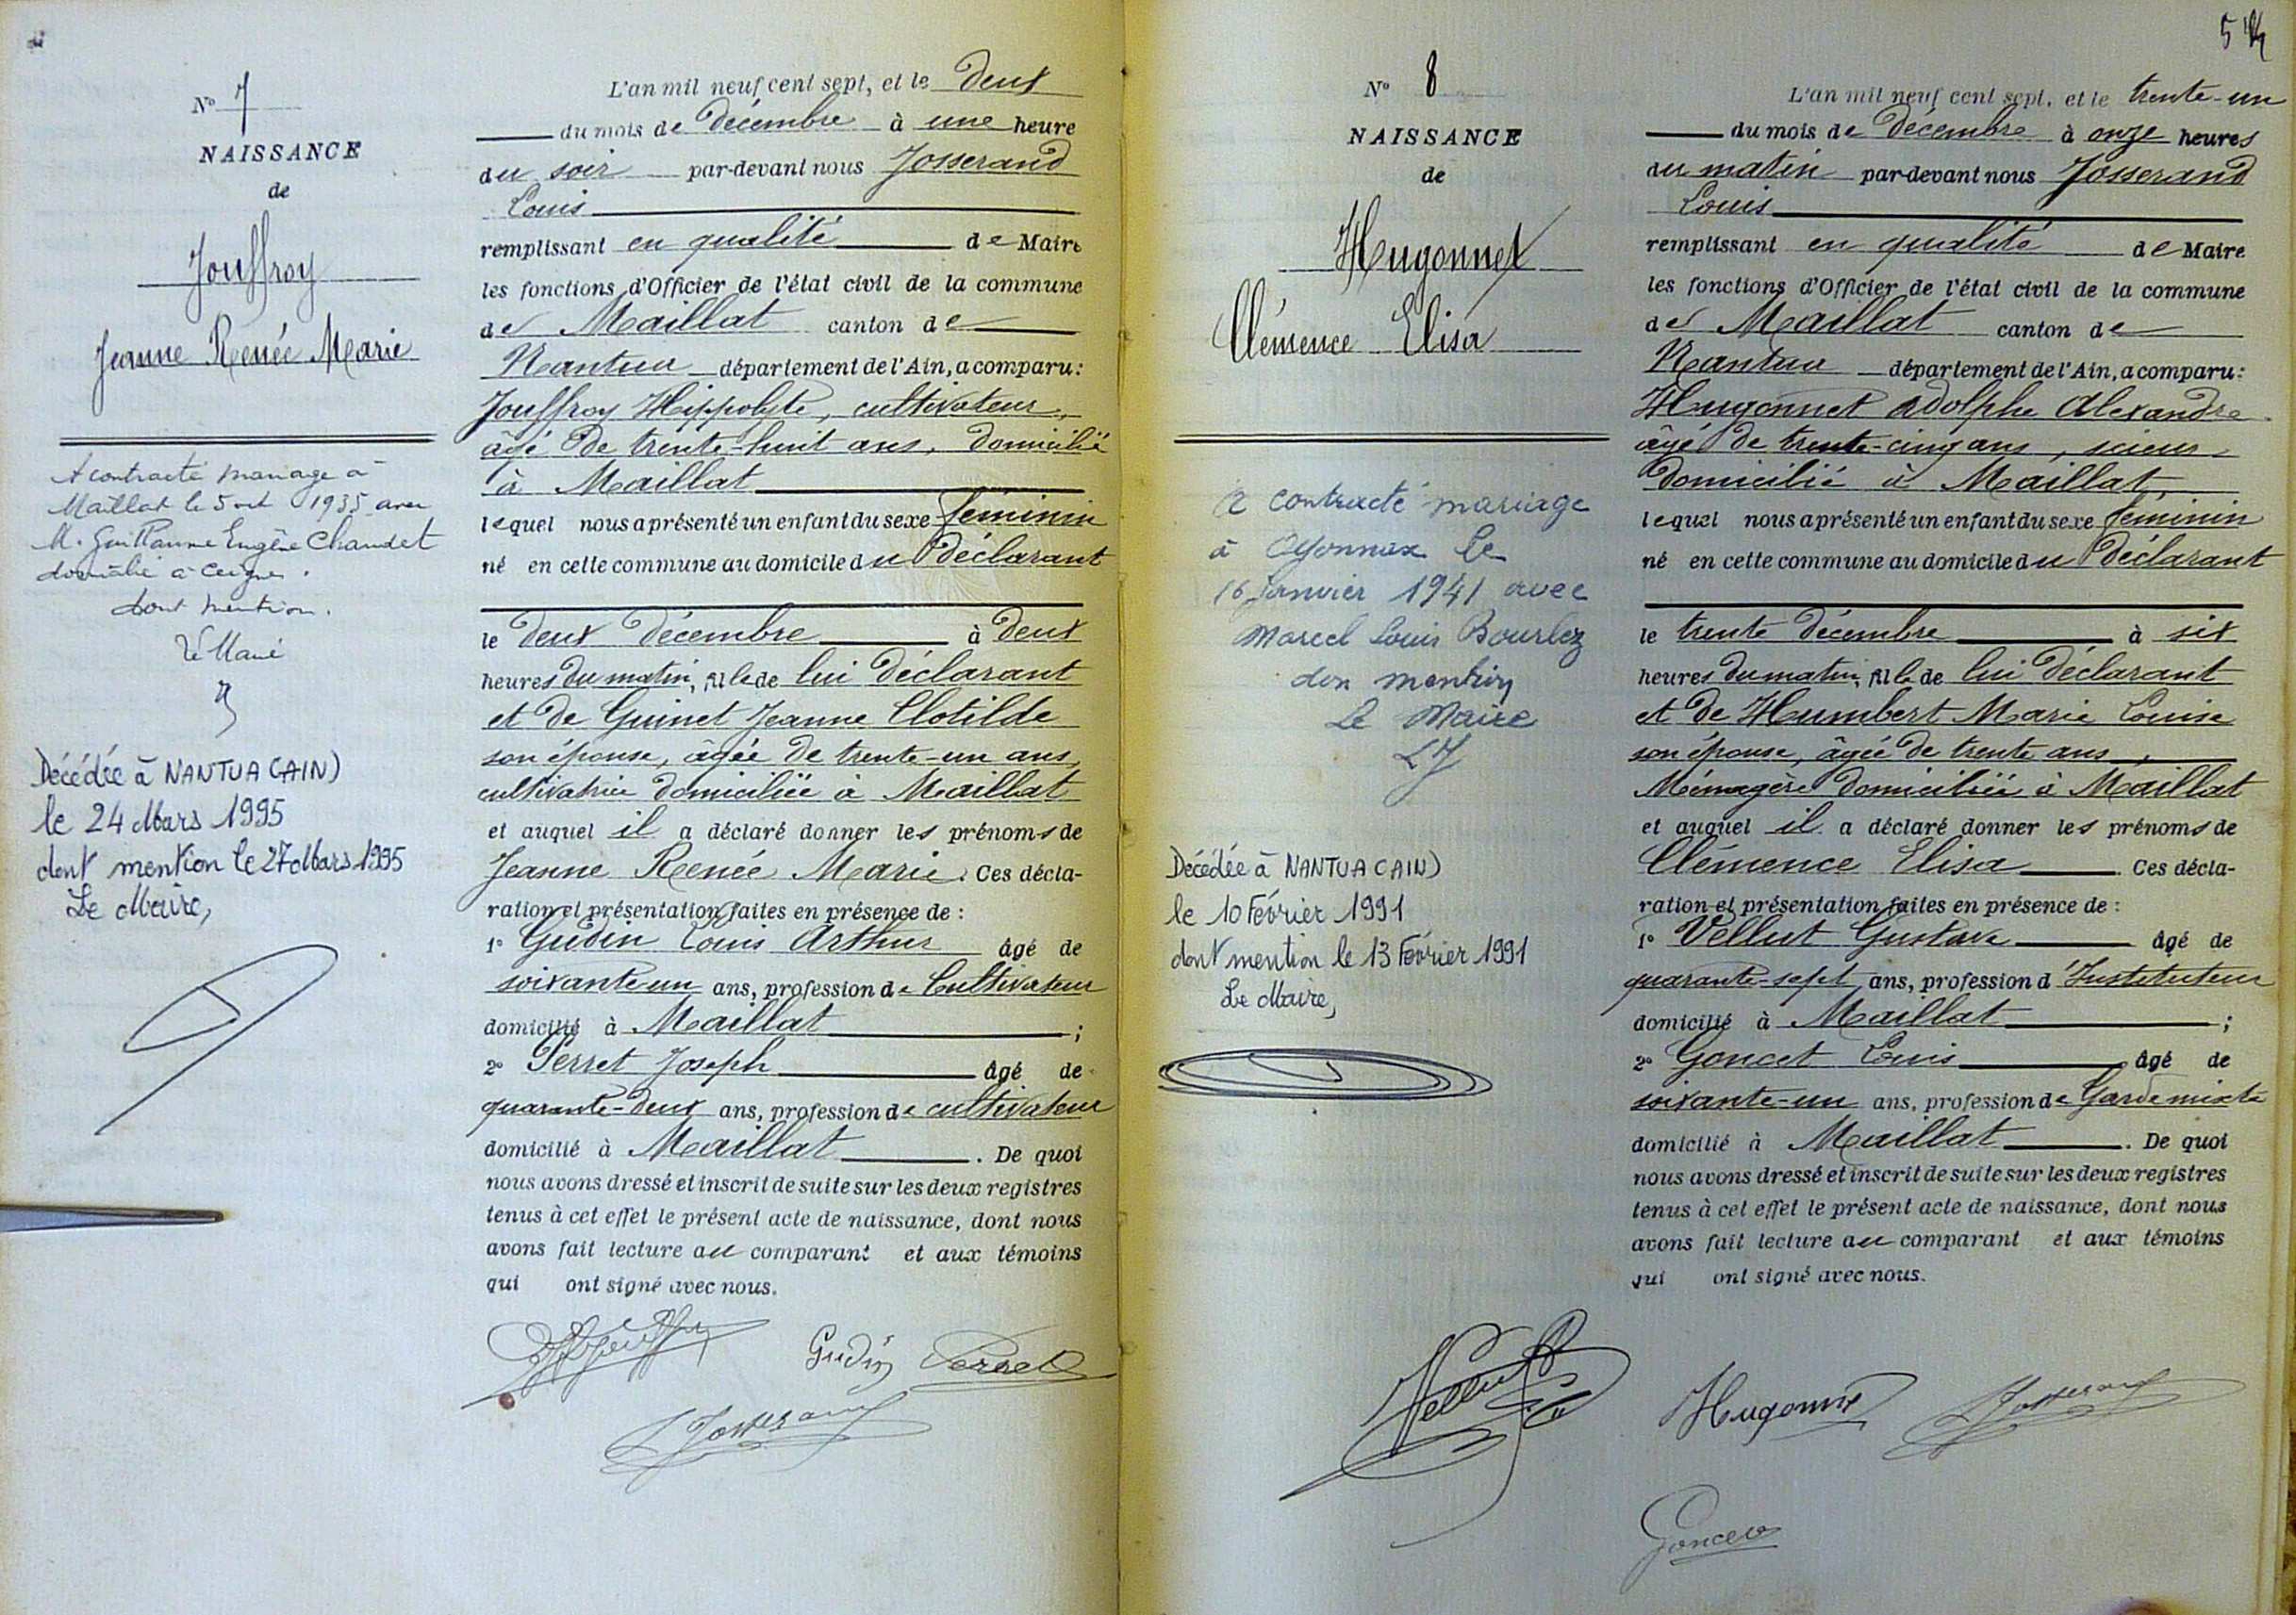 N° 7
NAISSANCE
de
Jouffroy
Jeanne Renée Marie
A contracté mariage à
Maillat le 5 oct 1935 avec
M. Guillaume Eugène Chaudet
domicilié à
dont mention.
Le Maire
Décédée à NANTUA (AIN)
le 24 Mars 1995
dont mention le 27 Mars 1995
Le Maire,
L'an mil neuf cent sept, et le deux
du mois de décembre à une heure
du soir par-devant nous Josserand
Louis
remplissant en qualité de Maire
les fonctions d'Officier de l'état civil de la commune
de Maillat canton de
Nantua département de l'Ain, a comparu :
Jouffroy Hippolyte, cultivateur,
âgé de trente-huit ans, domicilié
à Maillat
lequel nous a présenté un enfant du sexe féminin
né en cette commune au domicile du déclarant
le deux décembre à deux
heures du matin, fille de lui déclarant
et de Guinet Jeanne Clotilde
son épouse, âgée de trente-un ans,
cultivatrice domiciliée à Maillat
et auquel il a déclaré donner les prénoms de
Jeanne Renée Marie. Ces décla-
ration et présentation faites en présence de :
1° Gudin Louis Arthur âgé de
soixante un ans, profession de Cultivateur
domicilié à Maillat ;
2° Perret Joseph âgé de
quarante-deux ans, profession de cultivateur
domicilié à Maillat . De quoi
nous avons dressé et inscrit de suite sur les deux registres
tenus à cet effet le présent acte de naissance, dont nous
avons fait lecture au comparant et aux témoins
qui ont signé avec nous.
Gudin Perret
L Josserand
5
N° 8
NAISSANCE
de
Hugonnet
Clémence Elisa
A contracté mariage
à Oyonnax le
16 Janvier 1941 avec
Marcel Louis Bourlez
don mention
Le Maire
LJ
Décédée à NANTUA (AIN)
le 10 Février 1991
dont mention le 13 Février 1991
Le Maire,
L'an mil neuf cent sept, et le trente-un
du mois de décembre à onze heures
du matin par-devant nous Josserand
Louis
remplissant en qualité de Maire
les fonctions d'Officier de l'état civil de la commune
de Maillat canton de
Nantua département de l'Ain, a comparu :
Hugonnet Adolphe Alexandre
âgé de trente-cinq ans, scieur
domicilié à Maillat,
lequel nous a présenté un enfant du sexe féminin
né en cette commune au domicile du déclarant
le trente décembre à six
heures du matin, fille de lui déclarant
et de Humbert Marie Louise
son épouse, âgée de trente ans,
Ménagère domiciliée à Maillat
et auquel il a déclaré donner les prénoms de
Clémence Elisa . Ces décla-
ration et présentation faites en présence de :
1° Vellut Gustave âgé de
quarante-sept ans, profession d'Instituteur
domicilié à Maillat ;
2° Goncet Louis âgé de
soixante-un ans, profession de Garde mixte
domicilié à Maillat . De quoi
nous avons dressé et inscrit de suite sur les deux registres
tenus à cet effet le présent acte de naissance, dont nous
avons fait lecture au comparant et aux témoins
qui ont signé avec nous.
Vellut Hugonnet L Josserand
Goncet